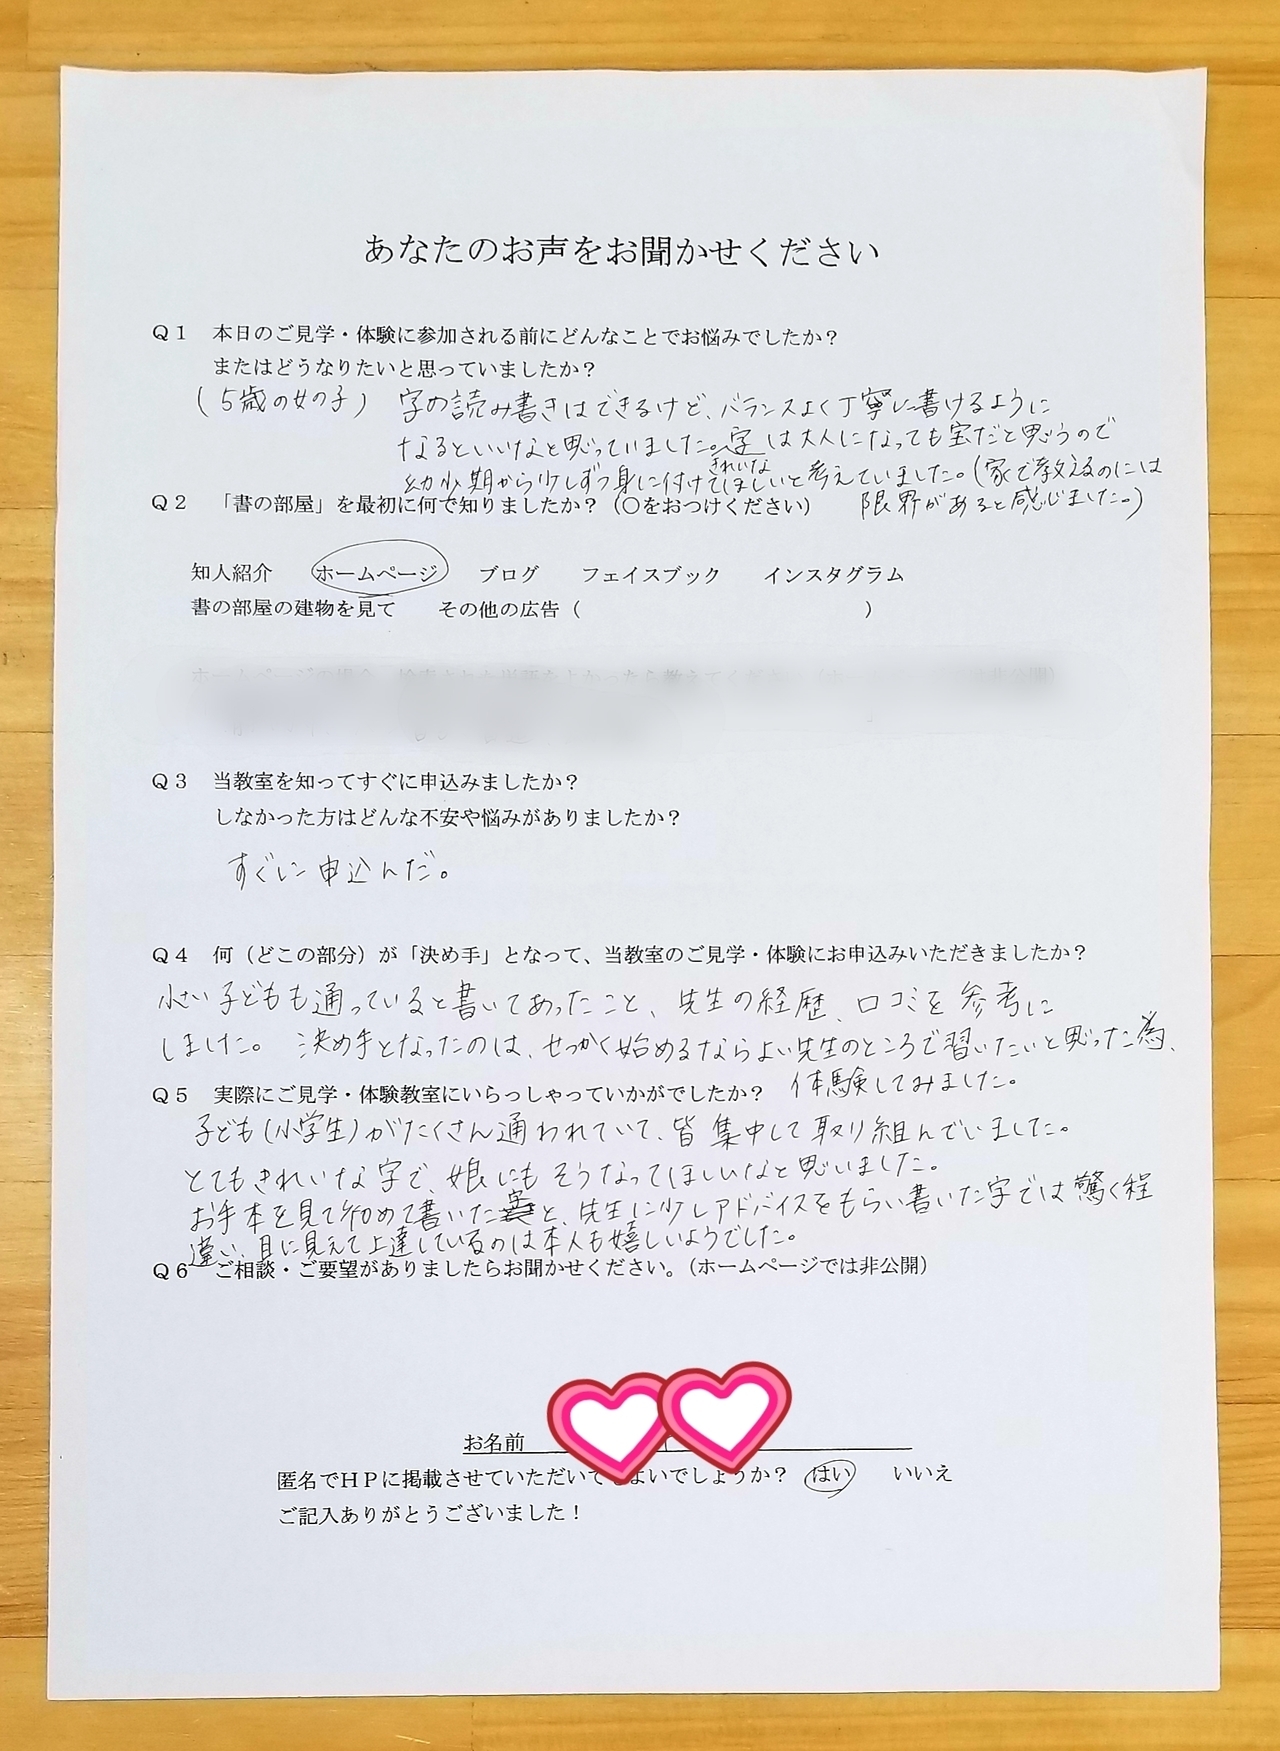 あなたのお声をお聞かせください
Q1 本日のご見学・体験に参加される前にどんなことでお悩みでしたか?
またはどうなりたいと思っていましたか?
(5歳の女の子) 字の読み書きはできるけど、バランスよく丁寧に書けるように
なるといいなと思っていました。きれいな字は大人になっても宝だと思うので
幼少期から少しずつ身に付けてほしいと考えていました。(家で教えるのには
限界があると感じました。)
Q2 「書の部屋」を最初に何で知りましたか?(○をおつけください)
知人紹介 ホームページ ブログ フェイスブック インスタグラム
書の部屋の建物を見て その他の広告( )
Q3 当教室を知ってすぐに申込みましたか?
しなかった方はどんな不安や悩みがありましたか?
すぐに申込んだ。
Q4 何(どこの部分)が「決め手」となって、当教室のご見学・体験にお申込みいただきましたか?
小さい子どもも通っていると書いてあったこと、先生の経歴、口コミを参考に
しました。 決め手となったのは、せっかく始めるならよい先生のところで習いたいと思った為、
体験してみました。
Q5 実際にご見学・体験教室にいらっしゃっていかがでしたか?
子ども(小学生)がたくさん通われていて、皆集中して取り組んでいました。
とてもきれいな字で、娘にもそうなってほしいなと思いました。
お手本を見て初めて書いた字と、先生に少しアドバイスをもらい書いた字では驚く程
違い、目に見えて上達しているのは本人も嬉しいようでした。
Q6 ご相談・ご要望がありましたらお聞かせください。(ホームページでは非公開)
お名前
匿名でHPに掲載させていただいてもよいでしょうか? はい いいえ
ご記入ありがとうございました!